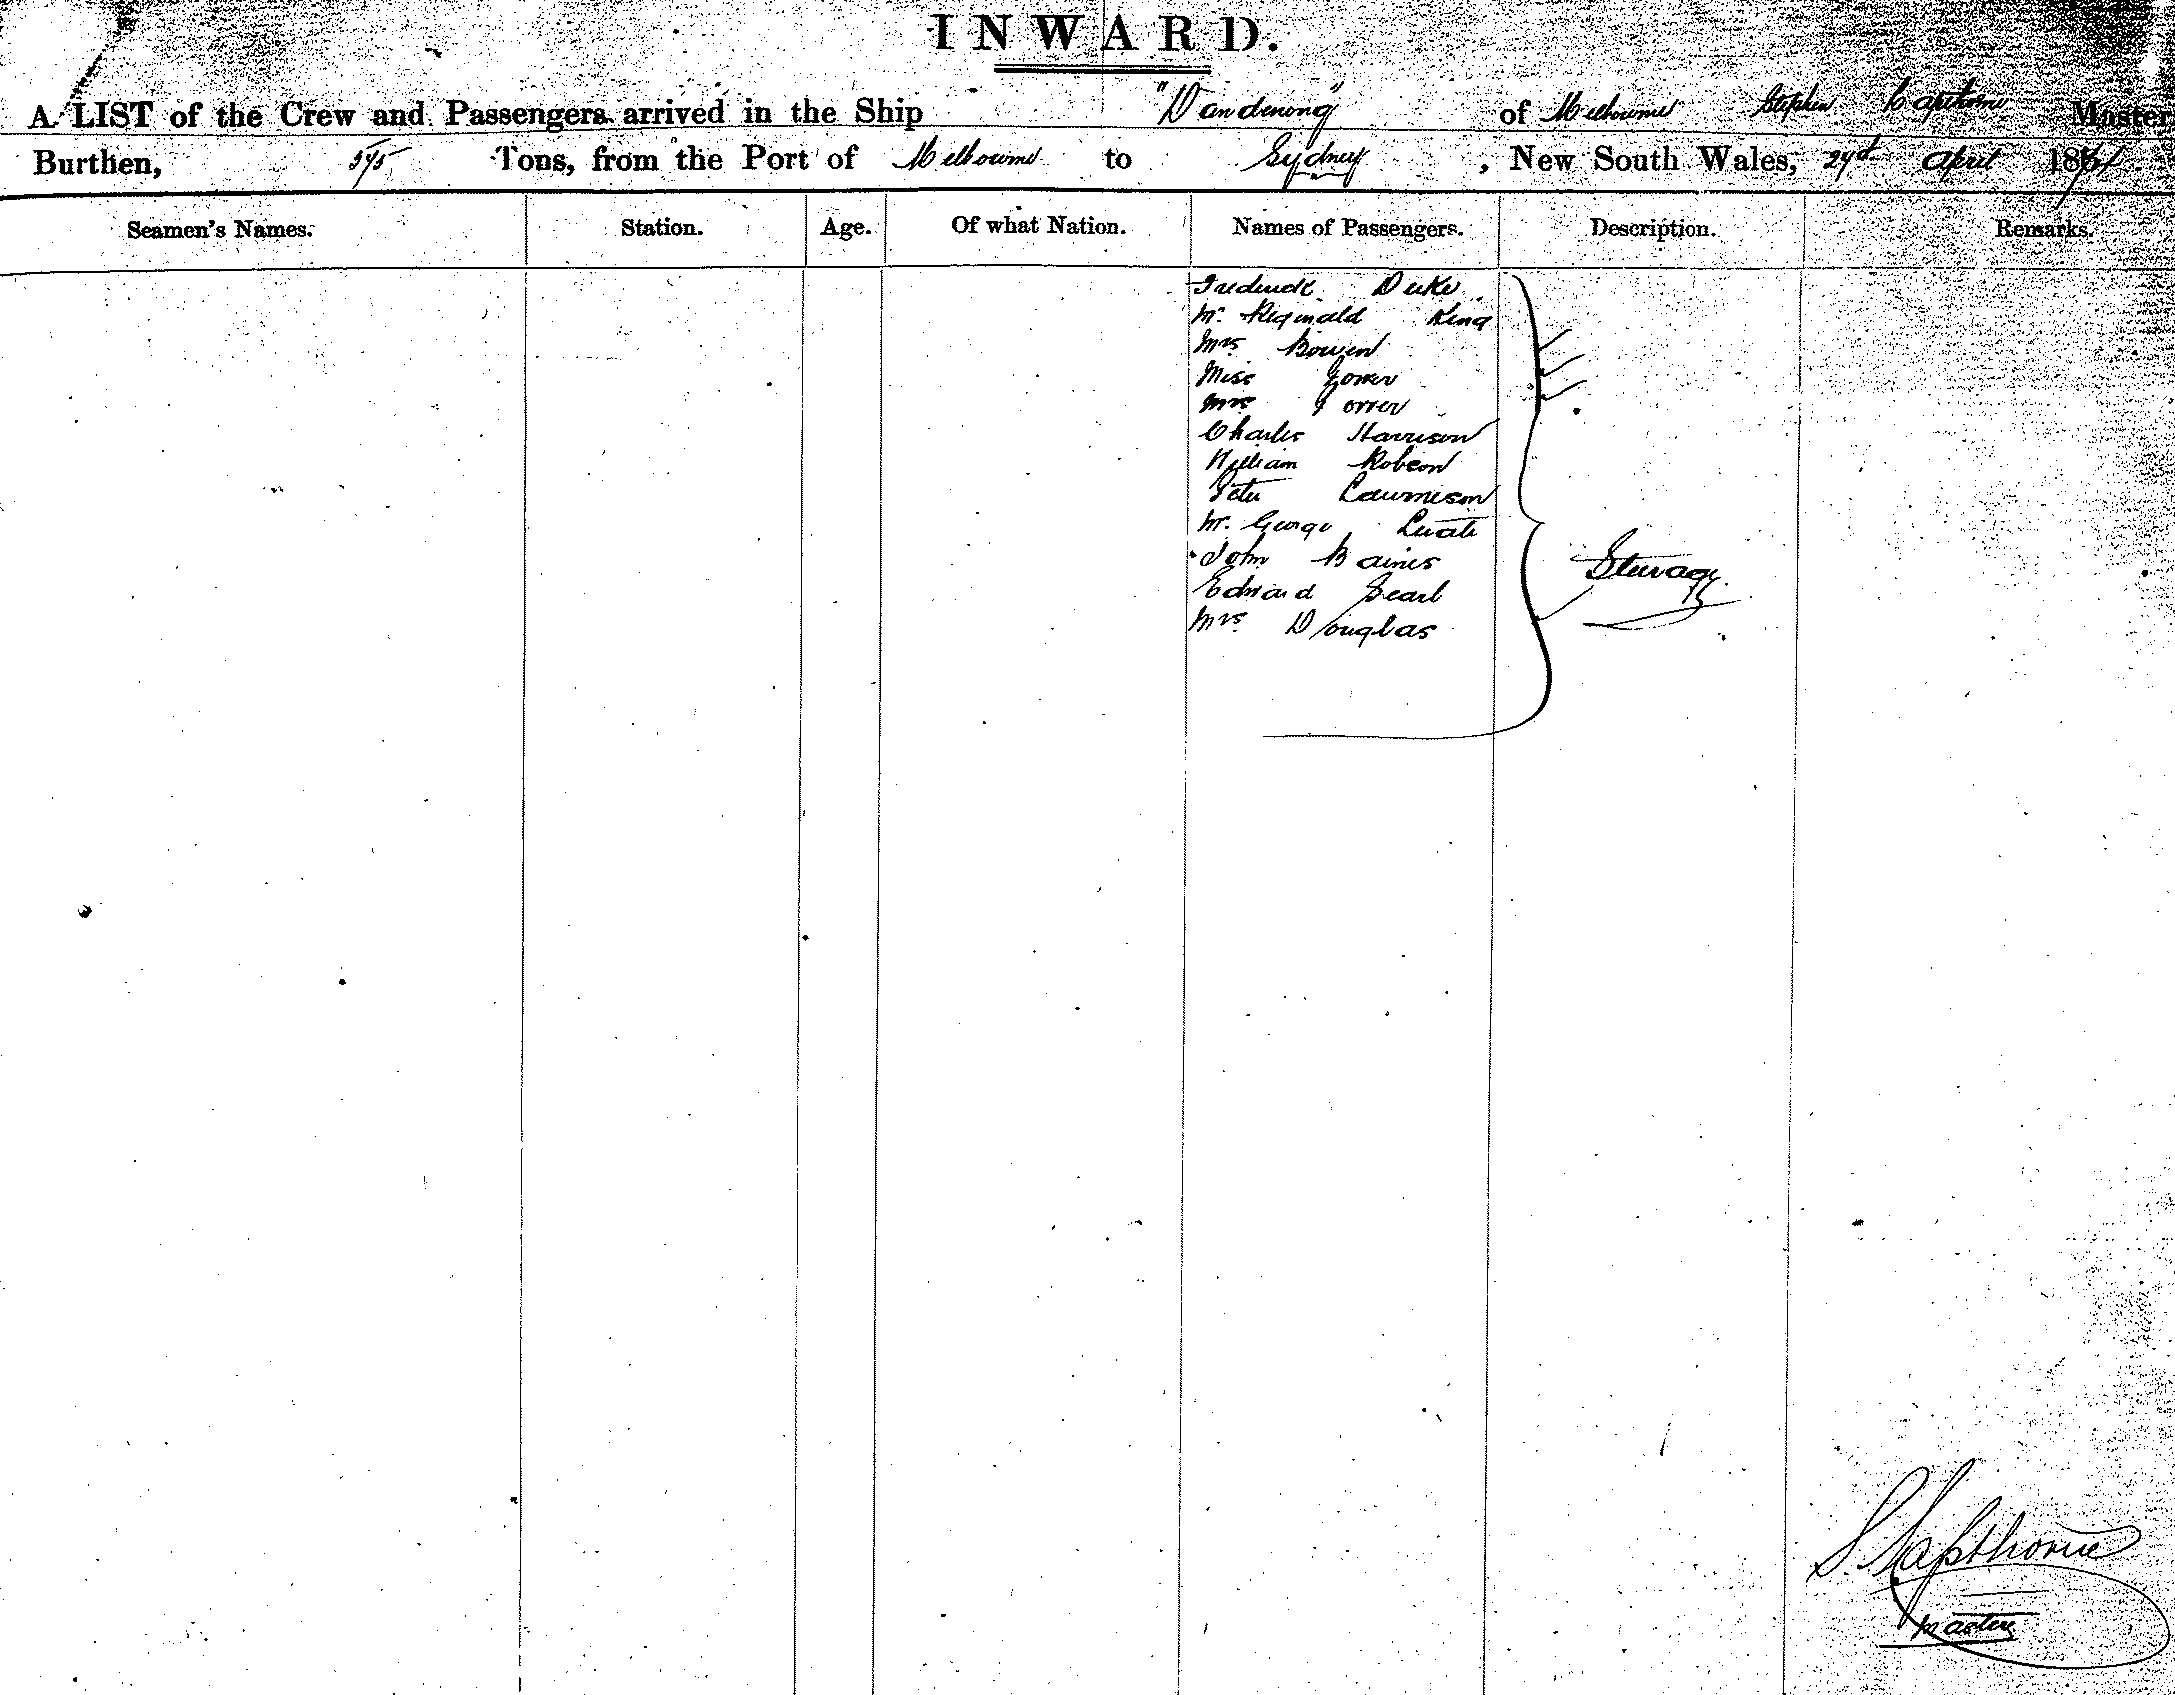 INWARD.
A LIST of the Crew and Passengers arrived in the Ship "Dandenong" of Melbourne Stephen Capthorne Master,
Burthen, 575 Tons, from the Port of Melbourne to Sydney, New South Wales, April
Seamen's Names. Station. Age. Of what Nation. Names of Passengers. Description. Remarks.
Frederick Duke
Mr. Reginald King
Mrs Bowen
Miss
Mrs
Charles Harrison
William Robson
Peter
Mr. George
John Baines
Edward Searl
Mrs Douglas
Steerage
Master